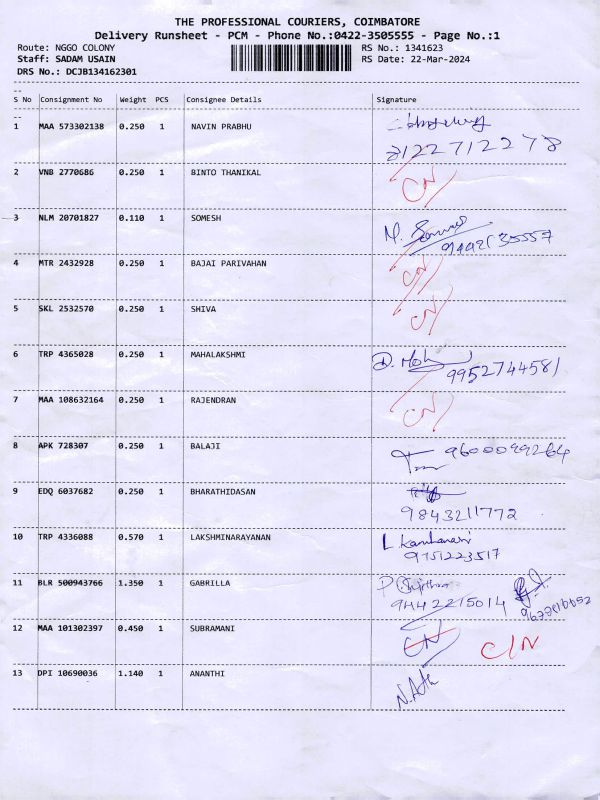 THE PROFESSIONAL COURIERS, COIMBATORE
Delivery Runsheet - PCM - Phone No.:0422-3505555 - Page No.:1
Route: NGGO COLONY RS No.: 1341623
Staff: SADAM USAIN RS Date: 22-Mar-2024
DRS No.: DCJB134162301
S No Consignment No Weight PCS Consignee Details Signature
1 MAA 573302138 0.250 1 NAVIN PRABHU
2 VNB 2770686 0.250 1 BINTO THANIKAL CN
3 NLM 20701827 0.110 1 SOMESH
4 MTR 2432928 0.250 1 BAJAI PARIVAHAN CN
5 SKL 2532570 0.250 1 SHIVA CN
6 TRP 4365028 0.250 1 MAHALAKSHMI
9952744581
7 MAA 108632164 0.250 1 RAJENDRAN CN
8 APK 728307 0.250 1 BALAJI
9 EDQ 6037682 0.250 1 BHARATHIDASAN
9843211772
10 TRP 4336088 0.570 1 LAKSHMINARAYANAN
9751223517
11 BLR 500943766 1.350 1 GABRILLA
9442215014
12 MAA 101302397 0.450 1 SUBRAMANI CN C/N
13 DPI 10690036 1.140 1 ANANTHI